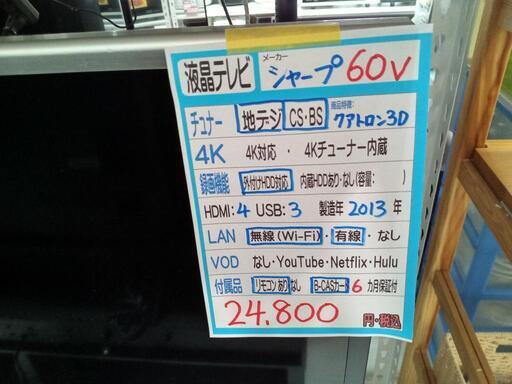 液晶テレビ メーカー シャープ 60V
チュナー 地デジ CS・BS 商品特徴: クアトロン3D
4K 4K対応 ・ 4Kチューナー内蔵
録画機能 外付けHDD対応 内蔵HDDあり・なし(容量: )
HDMI: 4 USB: 3 製造年 2013 年
LAN 無線(Wi-Fi)・有線・なし
VOD なし・YouTube・Netflix・Hulu
付属品 リモコンあり なし B-CASカード 6 カ月保証付
24,800 円・税込